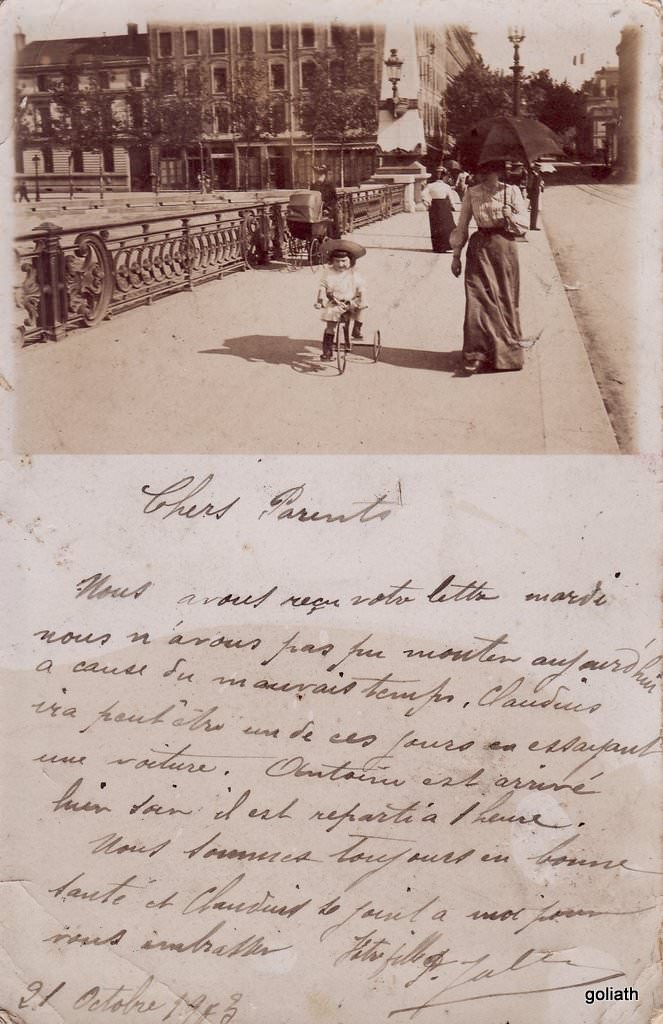 Chers Parents
Nous avons reçu votre lettre mardi
nous n'avons pas pu monter aujourd'hui
a cause du mauvais temps. Claudius
ira peut être un de ces jours en essayant
une voiture. Antoine est arrivé
hier soir il est reparti a 1 heure.
Nous sommes toujours en bonne
santé et Claudius se joint a moi pour
vous embrasser Votre fille
21 Octobre
goliath